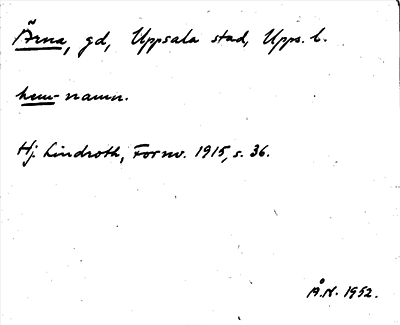 Ärna, gd, Uppsala stad, Upps. l.
hem-namn.
Hj. Lindroth, Fornv. 1915, s. 36.
Å.N. 1952.